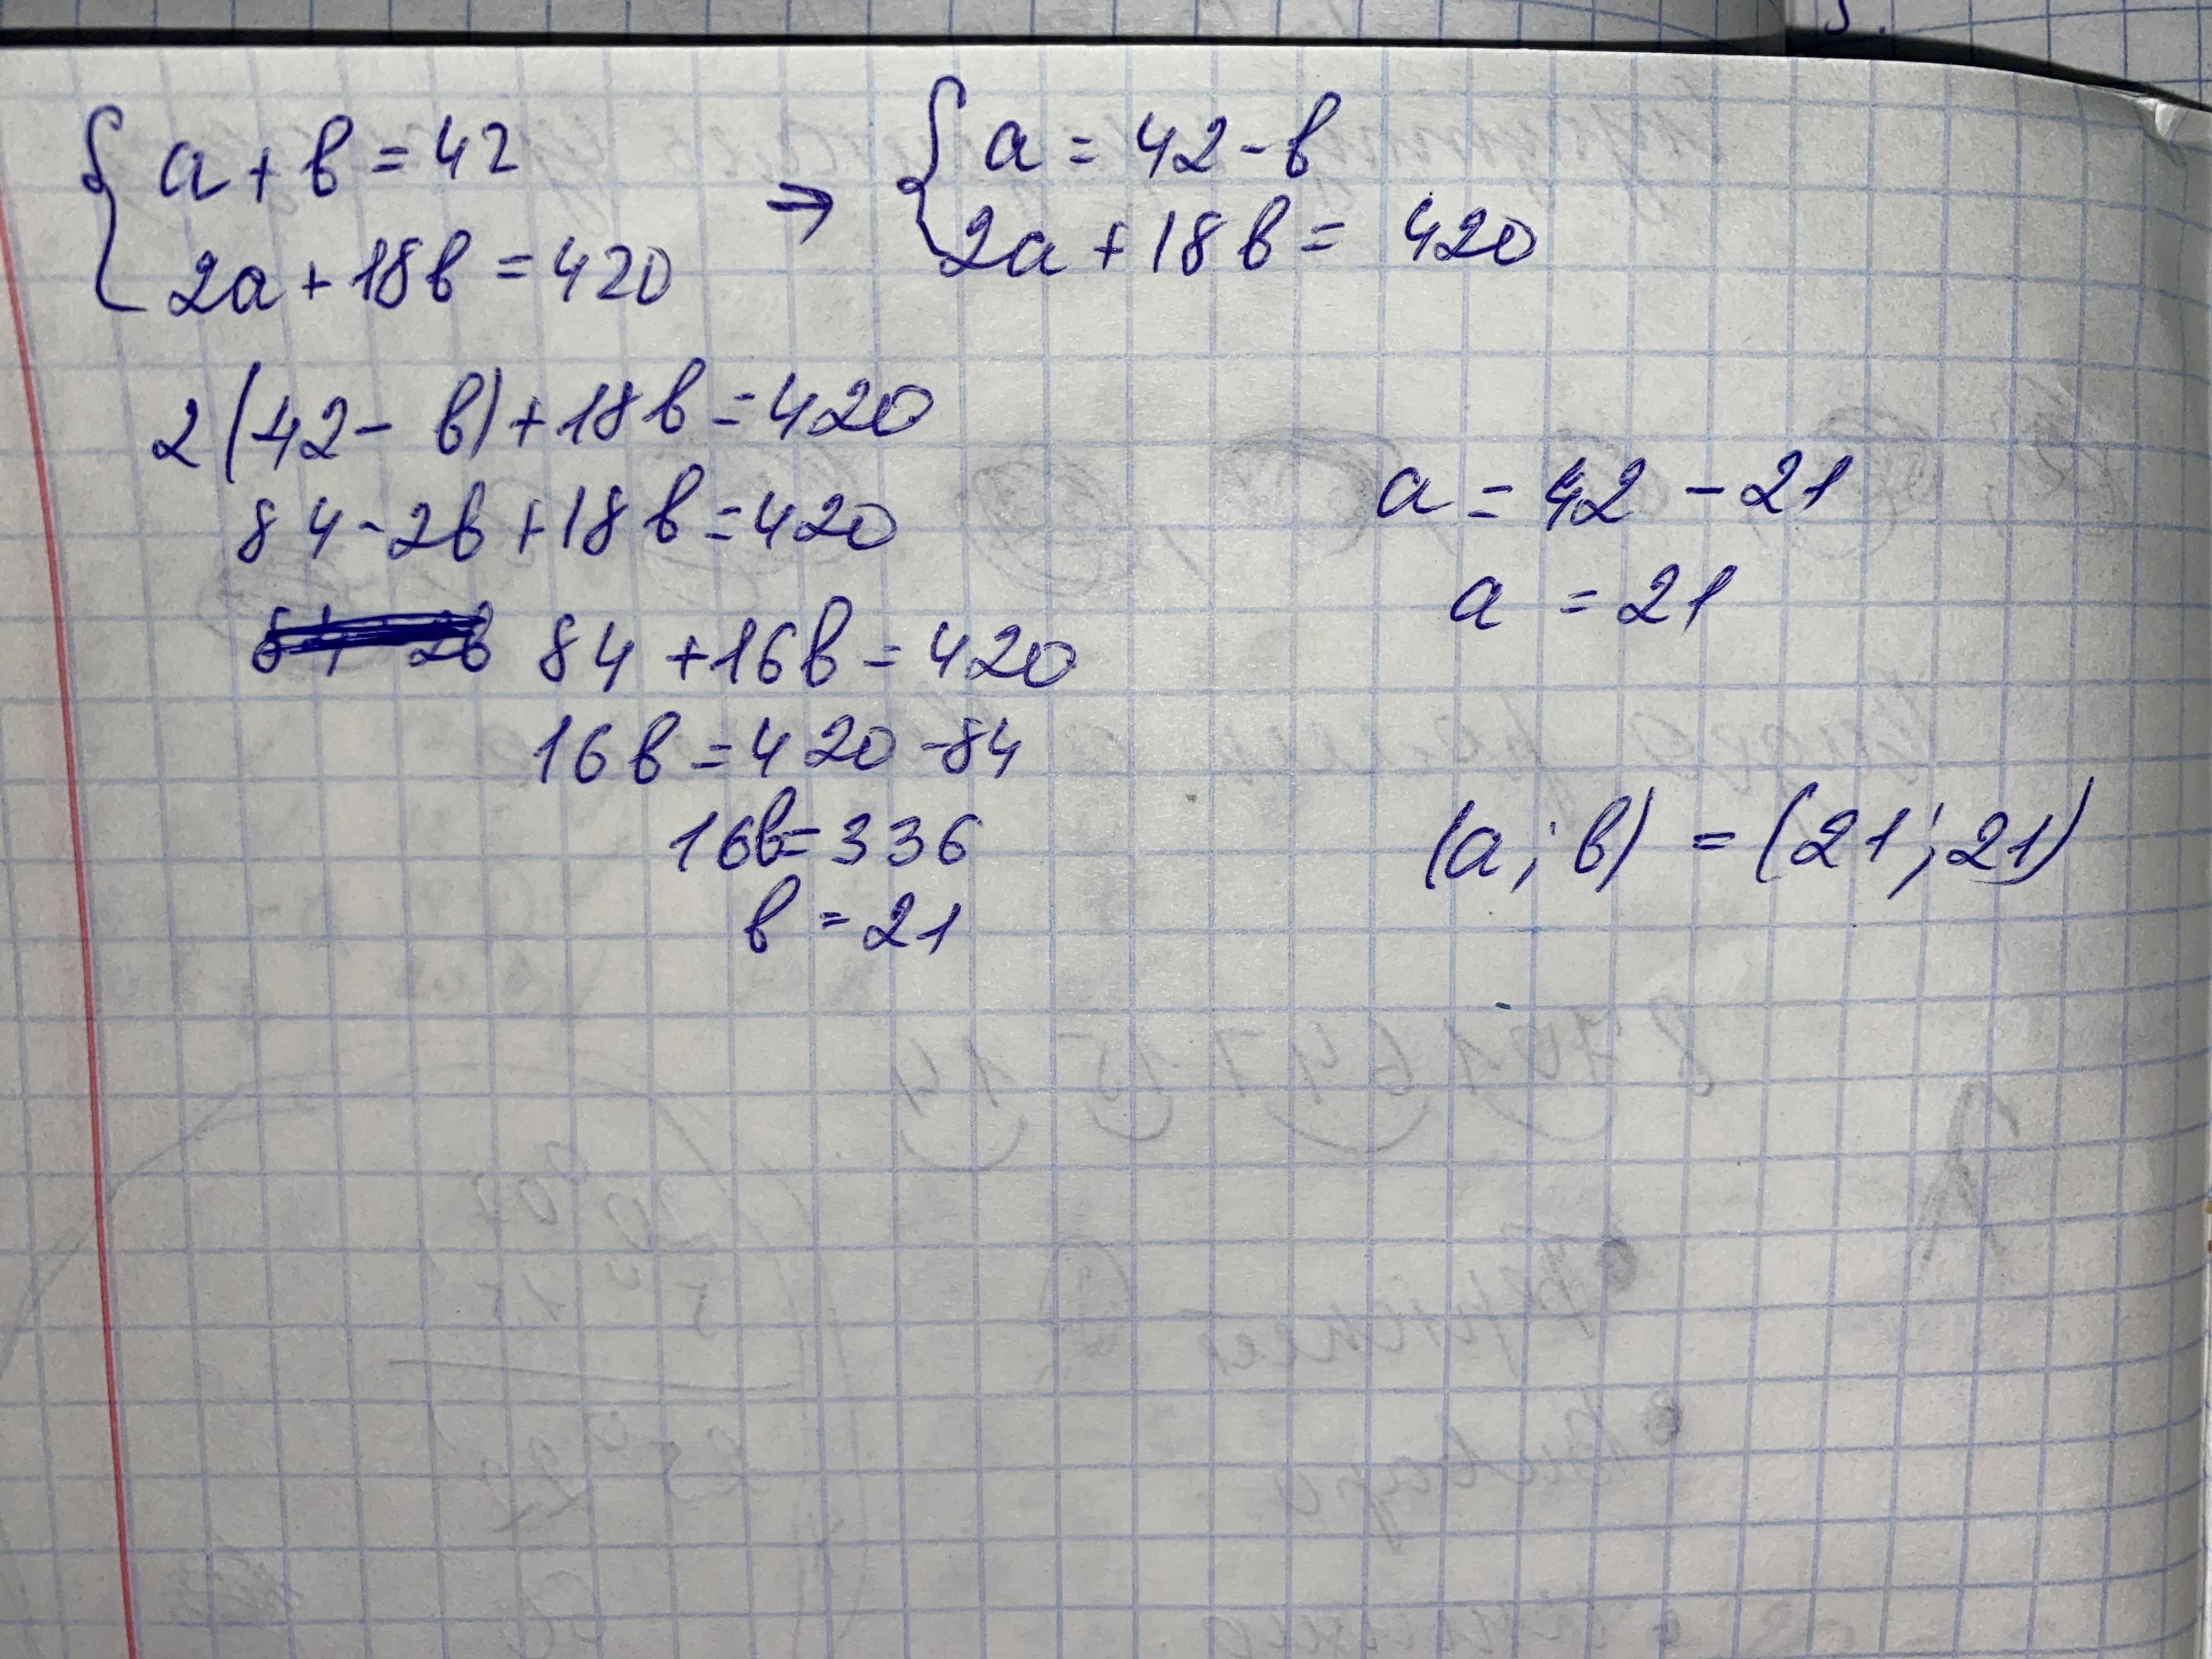 { a + b = 42 → { a = 42 - b
2a + 18b = 420 2a + 18b = 420
2(42 - b) + 18b = 420
84 - 2b + 18b = 420
84 + 16b = 420
16b = 420 - 84
16b = 336
b = 21
a = 42 - 21
a = 21
(a; b) = (21; 21)